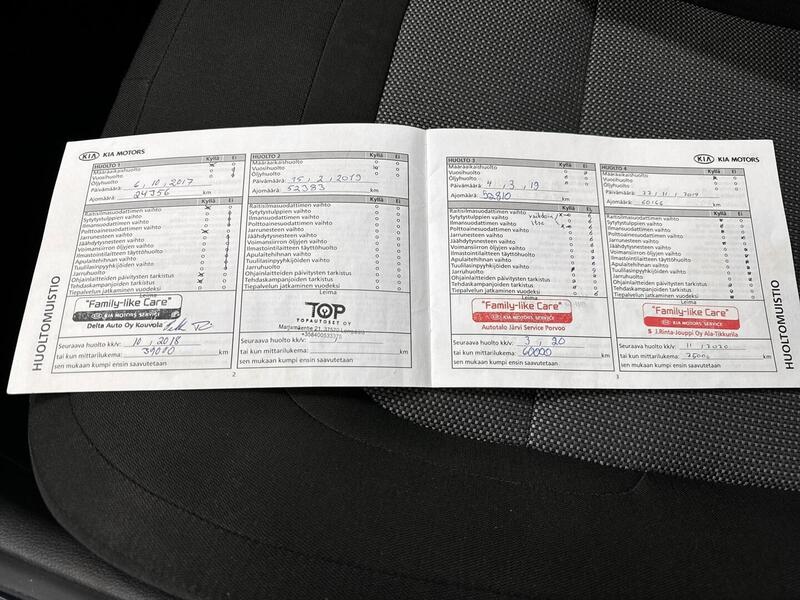 KIA KIA MOTORS
HUOLTO 1 Kyllä Ei
Määräaikaishuolto
Vuosihuolto
Öljyhuolto
Päivämäärä: 6, 10, 2017
Ajomäärä: 24356 km
Raitisilmasuodattimen vaihto
Sytytystulppien vaihto
Ilmansuodattimen vaihto
Polttoainesuodattimen vaihto
Jarrunesteen vaihto
Jäähdytysnesteen vaihto
Voimansiirron öljyjen vaihto
Ilmastointilaitteen täyttöhuolto
Apulaitehihnan vaihto
Tuulilasinpyyhkijöiden vaihto
Jarruhuolto
Ohjainlaitteiden päivitysten tarkistus
Tehdaskampanjoiden tarkistus
Tiepalvelun jatkaminen vuodeksi
Leima
"Family-like Care"
KIA MOTORS SERVICE
Delta Auto Oy Kouvola
Seuraava huolto kk/v: 10, 2018
tai kun mittarilukema: 39000 km
sen mukaan kumpi ensin saavutetaan
HUOLTOMUISTIO
2
HUOLTO 2 Kyllä Ei
Määräaikaishuolto
Vuosihuolto
Öljyhuolto
Päivämäärä: 15, 2, 2019
Ajomäärä: 52383 km
Raitisilmasuodattimen vaihto
Sytytystulppien vaihto
Ilmansuodattimen vaihto
Polttoainesuodattimen vaihto
Jarrunesteen vaihto
Jäähdytysnesteen vaihto
Voimansiirron öljyjen vaihto
Ilmastointilaitteen täyttöhuolto
Apulaitehihnan vaihto
Tuulilasinpyyhkijöiden vaihto
Jarruhuolto
Ohjainlaitteiden päivitysten tarkistus
Tehdaskampanjoiden tarkistus
Tiepalvelun jatkaminen vuodeksi
Leima
TOP
TOPAUTOSET OY
Seuraava huolto kk/v:
tai kun mittarilukema: km
sen mukaan kumpi ensin saavutetaan
HUOLTO 3 Kyllä Ei
Määräaikaishuolto
Vuosihuolto
Öljyhuolto
Päivämäärä: 4, 3, 19
Ajomäärä: 52810 km
Raitisilmasuodattimen vaihto
Sytytystulppien vaihto
Ilmansuodattimen vaihto
Polttoainesuodattimen vaihto
Jarrunesteen vaihto
Jäähdytysnesteen vaihto
Voimansiirron öljyjen vaihto
Ilmastointilaitteen täyttöhuolto
Apulaitehihnan vaihto
Tuulilasinpyyhkijöiden vaihto
Jarruhuolto
Ohjainlaitteiden päivitysten tarkistus
Tehdaskampanjoiden tarkistus
Tiepalvelun jatkaminen vuodeksi
Leima
"Family-like Care"
KIA MOTORS SERVICE
Autotalo Järvi Service Porvoo
Seuraava huolto kk/v: 3, 20
tai kun mittarilukema: 60000 km
sen mukaan kumpi ensin saavutetaan
3
KIA KIA MOTORS
HUOLTO 4 Kyllä Ei
Määräaikaishuolto
Vuosihuolto
Öljyhuolto
Päivämäärä:
Ajomäärä: km
Raitisilmasuodattimen vaihto
Sytytystulppien vaihto
Ilmansuodattimen vaihto
Polttoainesuodattimen vaihto
Jarrunesteen vaihto
Jäähdytysnesteen vaihto
Voimansiirron öljyjen vaihto
Ilmastointilaitteen täyttöhuolto
Apulaitehihnan vaihto
Tuulilasinpyyhkijöiden vaihto
Jarruhuolto
Ohjainlaitteiden päivitysten tarkistus
Tehdaskampanjoiden tarkistus
Tiepalvelun jatkaminen vuodeksi
Leima
"Family-like Care"
KIA MOTORS SERVICE
J.Rinta-Jouppi Oy Ala-Tikkurila
Seuraava huolto kk/v: 11, 2020
tai kun mittarilukema: km
sen mukaan kumpi ensin saavutetaan
HUOLTOMUISTIO